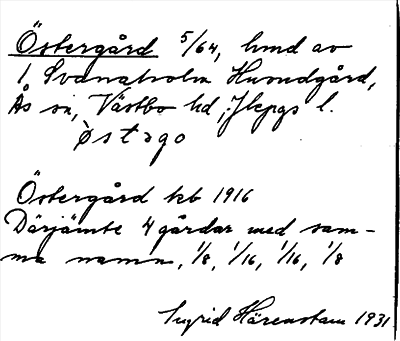 Östergård 5/64, hmd av
1 Svanaholm Huvudgård,
Ås sn, Västbo hd, Jkpgs l.
östərgo
Östergård kb 1916
Därjämte 4 gårdar med sam-
ma namn, 1/8, 1/16, 1/16, 1/8
Ingrid Härenstam 1931